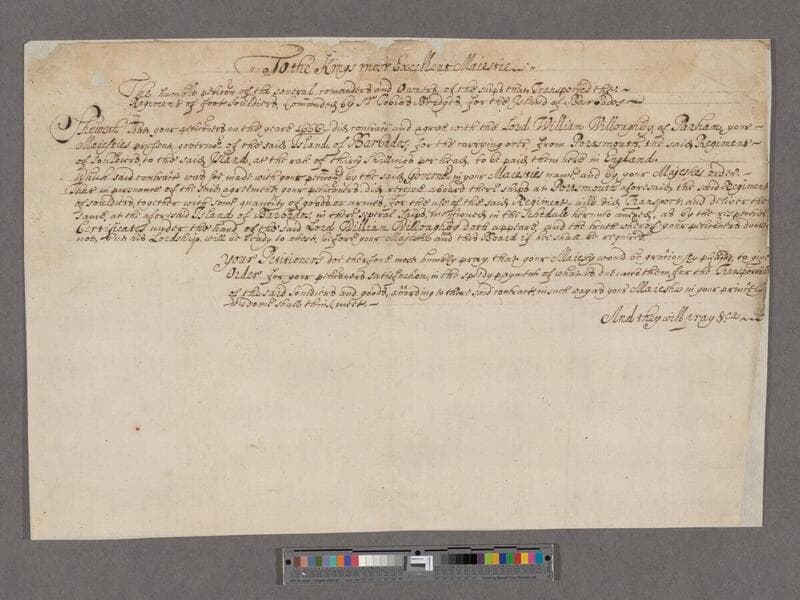 To the Kings most Excellent Majestie
The humble peticon of the several comanders and Owners of the ships that Transported the
Regiment of foot Souldiers Comanded by Sr Tobias Bridges, for the Island of Barbados
Sheweth That your petitioners in the yeare 1666, did contract and agree with the Lord William Willoughby, of Parham, your
Majesties present governor of the said Island of Barbados, for the carrying over, from Portsmouth, the said Regiment
of Souldiers to the said Island, at the rate of thirty shillings per head, to be paid them here in England.
Which said contract was so made with your petitionrs by the said Governor, in your Majesties name and by your Majesties order.
That in pursuance of the said agreement your petitioners did receive aboard there ships at Portsmouth aforesaid, the said Regiment
of souldiers, together with some quantity of goods or armes, for the use of the said Regiment, and did Transport and deliver the
same, at the aforesaid Island of Barbados, in there several ships, mentioned in the Scedule hereunto anexed, as by the respective
Certificates under the hand of the said Lord William Willoughby doth appeare, and the truth whereof your petitioners doubt
not, but his Lordship, will be ready to attest, before your Majestie and this Board if he shall be required
Your Petitioners doe therefore most humbly pray, that your Majesty would be gratiously pleased to give
Order for your petitioners satisfaction, in the speedy payment of what is due unto them for the Transportation
of the said Souldiers and goods, according to there said contract, in such way as your Majestie in your princely
wisdome shall think meet.
And they will pray &ca